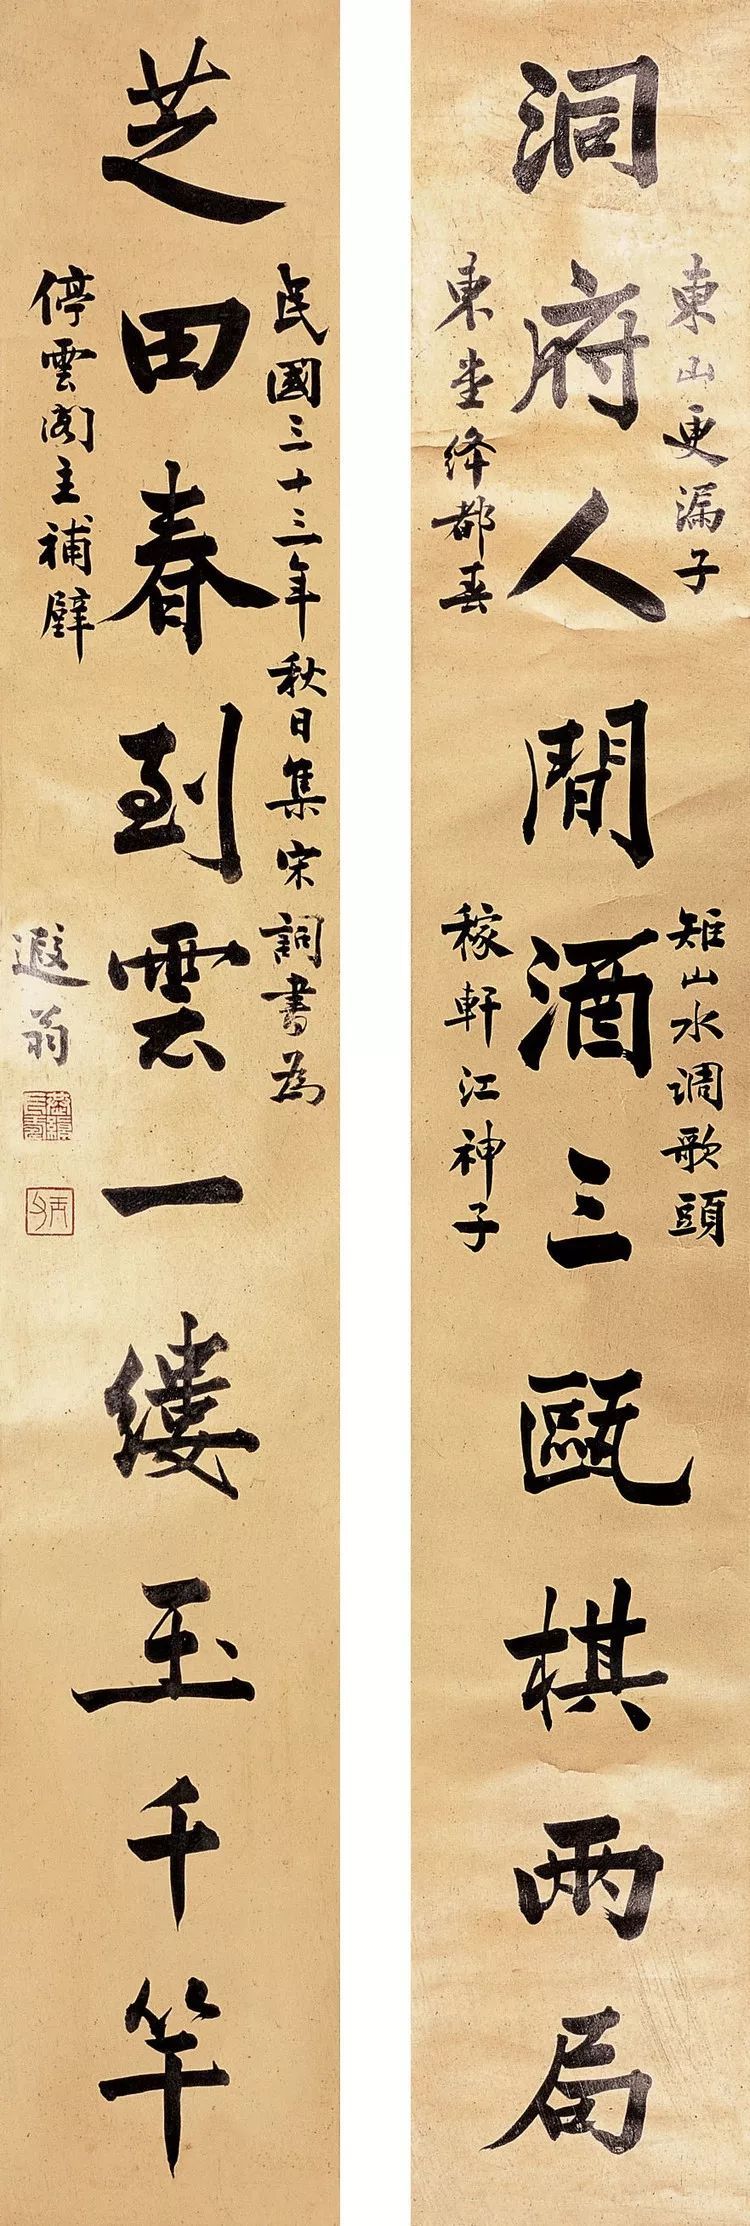 洞府人間酒三甌棋兩局
東山更漏子
東堂絳都春
矩山水調歌頭
稼軒江神子
芝田春到雲一縷玉千竿
民國三十三年秋日集宋詞書為
停雲閣主補壁
遐翁